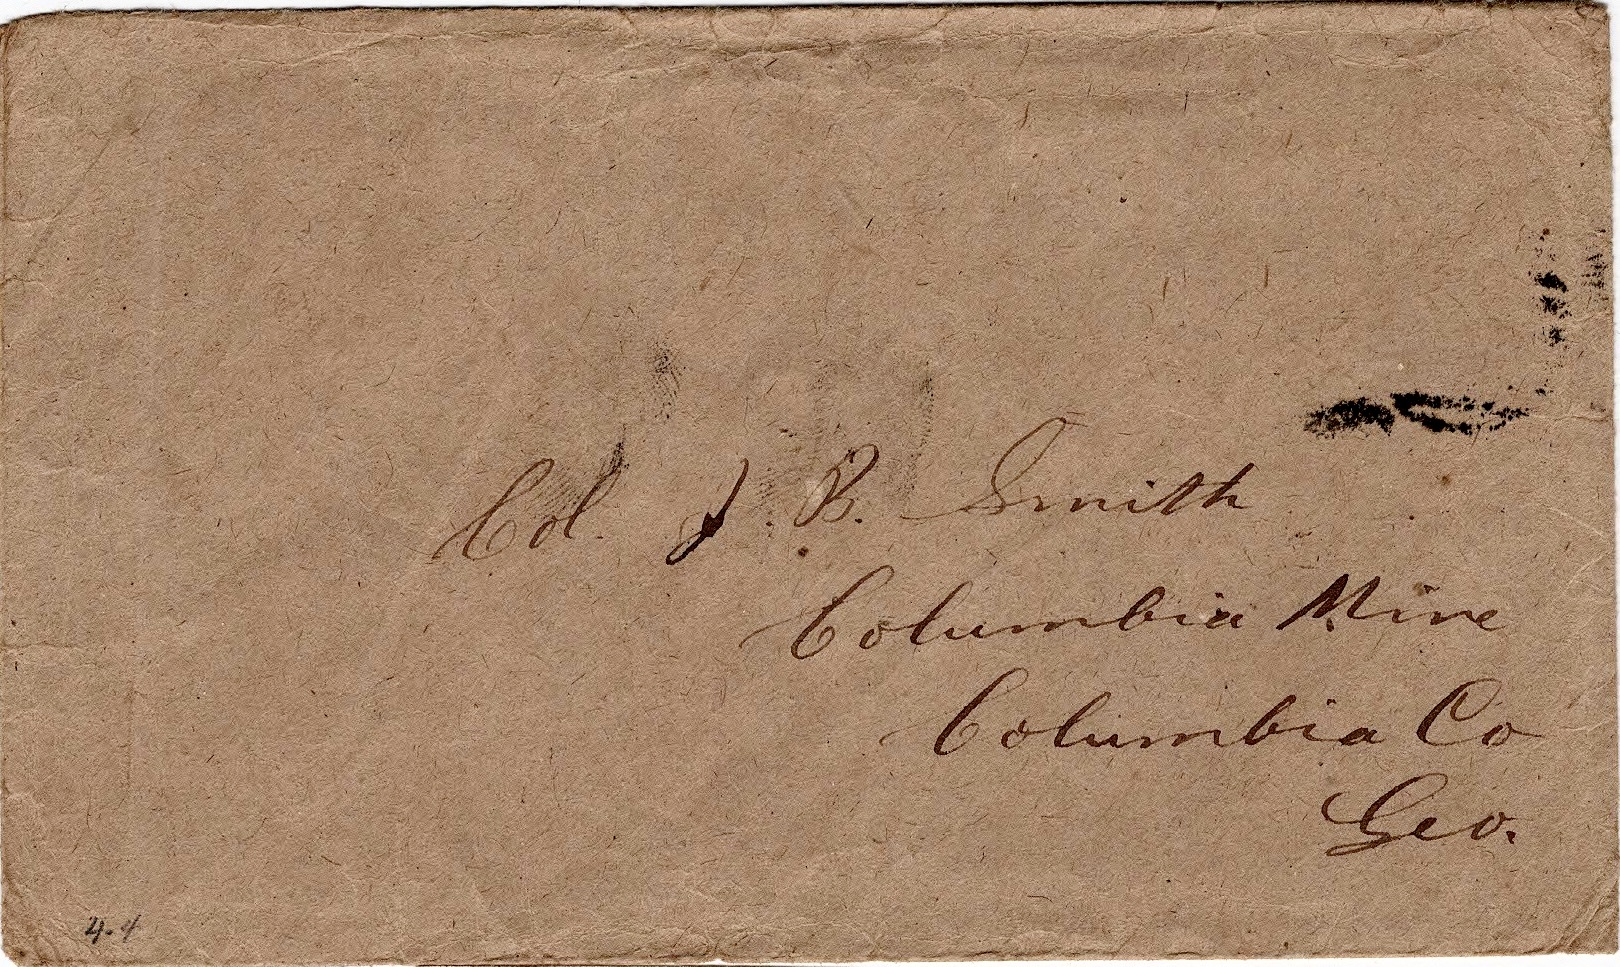 Col. J. B. Smith
Columbia Mine
Columbia Co
Geo.
4.4